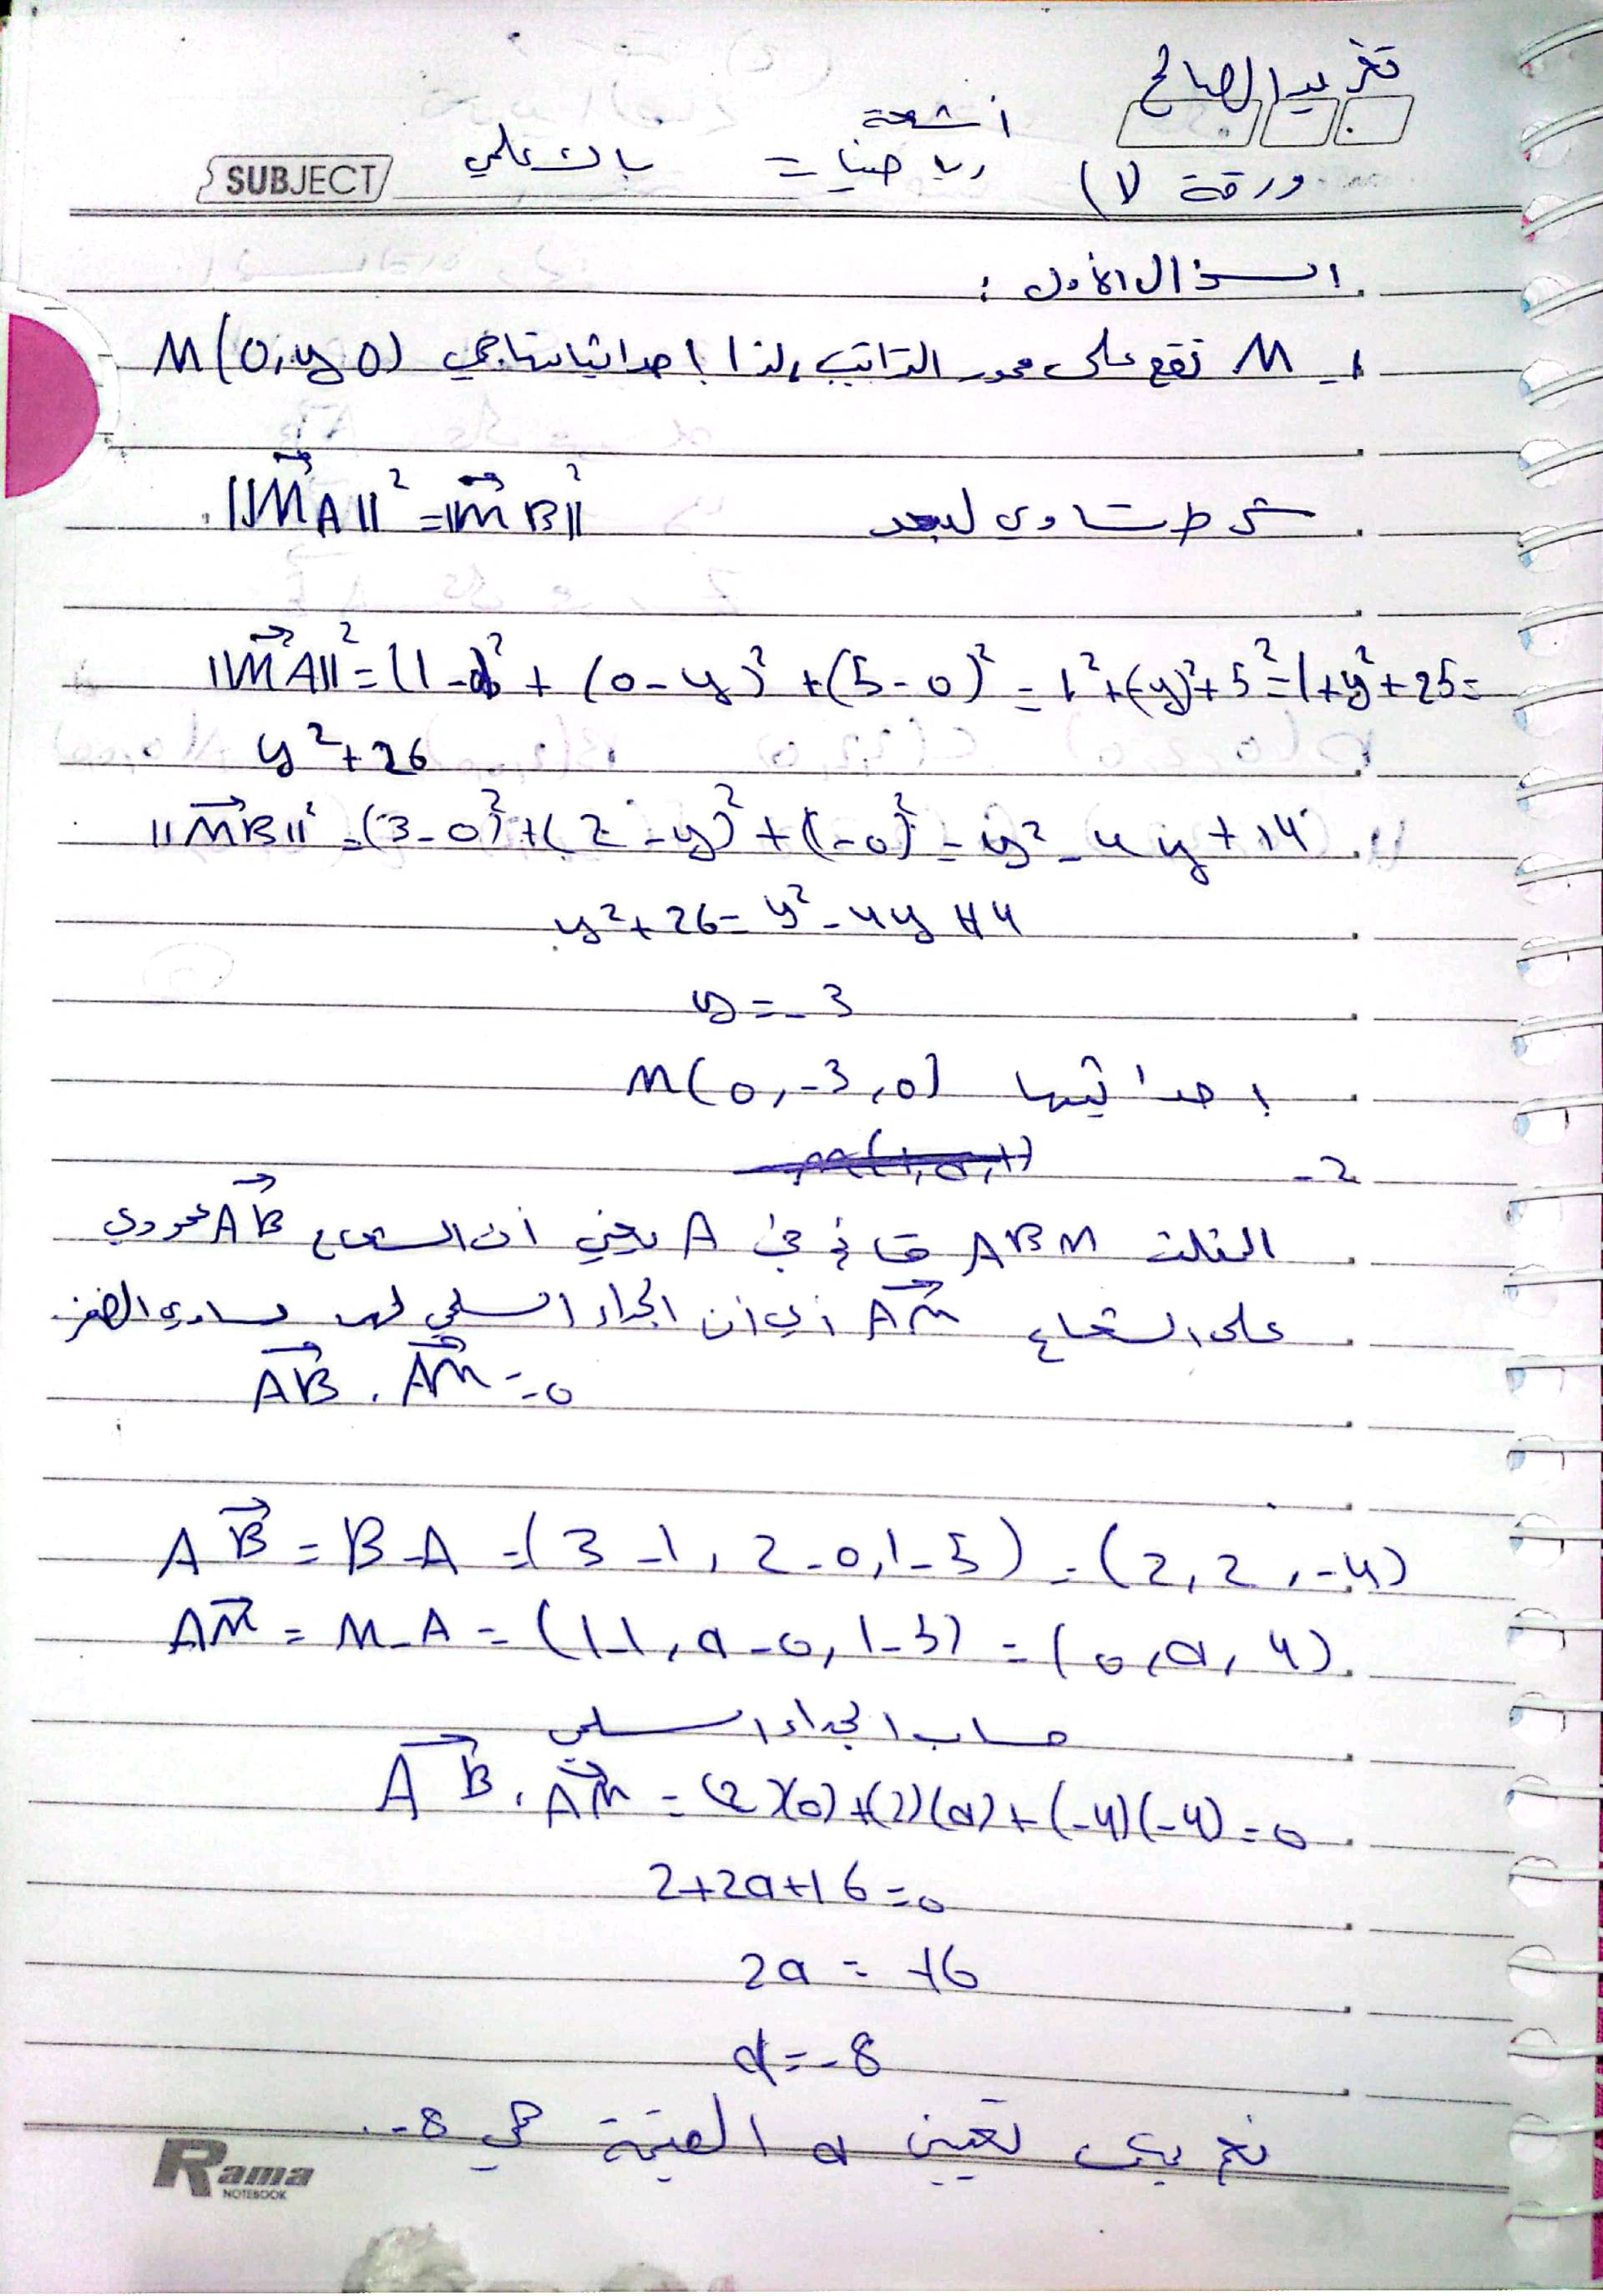 تغريد الصالح
أشعة
ورقة (1 رياضيات = باك علمي
SUBJECT
السؤال الأول :
1- M تقع على محور التراتيب لذا إحداثياتها هي M(0,y,0)
شرط تساوي لبعد ||MA||² = ||MB||²
||MA||² = (1-0)² + (0-y)² + (5-0)² = 1² + (-y)² + 5² = 1+y²+25=
y²+26
||MB||² = (3-0)² + (2-y)² + (1-0)² = y²-4y+14
y²+26=y²-4y+14
y=-3
إحداثيتها M(0,-3,0)
2-
المثلث ABM قائم في A يعني أن الشعاع AB عمودي
على الشعاع AM أي أن الجداء السلمي لهما يساوي الصفر
AB . AM = 0
AB = B-A = (3-1, 2-0, 1-5) = (2, 2, -4)
AM = M-A = (1-1, a-0, 1-5) = (0, a, 4)
حساب الجداء السلمي
AB . AM = (2)(0)+(2)(a)+(-4)(-4)=0
2+2a+16=0
2a = -16
a=-8
نعم يمكن تعيين a القيمة هي -8
Rama
NOTEBOOK